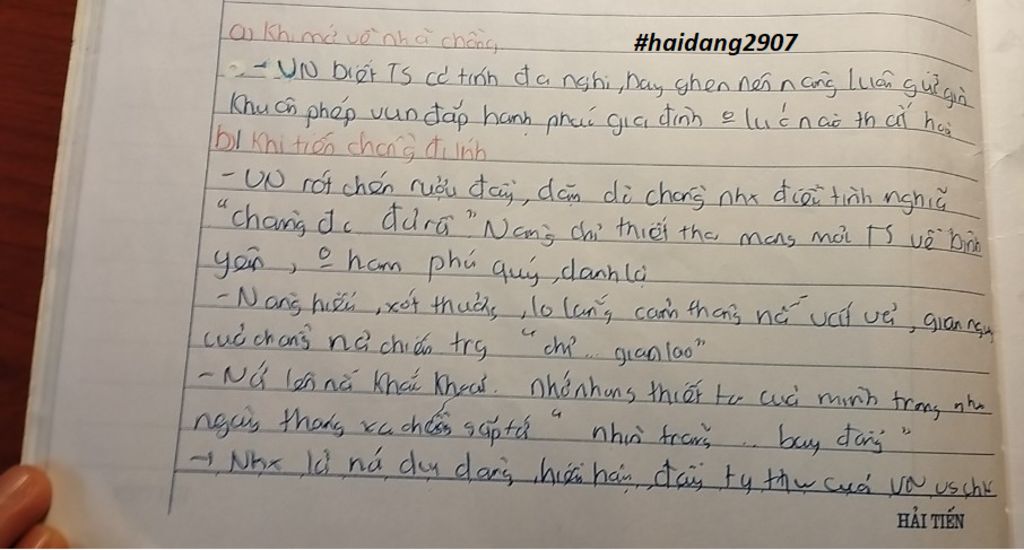 a) Khi mới về nhà chồng
#haidang2907
- VN biết TS có tính đa nghi, hay ghen nên nàng luôn giữ gìn
khuôn phép vun đắp hạnh phúc gia đình o lúc nào thất hoà
b) Khi tiễn chồng đi lính
- VN rót chén rượu đầy, dặn dò chồng nhx điều tình nghĩa
"chàng đc đi rồi" Nàng chỉ thiết tha mong mỏi TS về bình
yên, o ham phú quý, danh lợi
- Nàng hiểu, xót thương, lo lắng cảm thông nỗi vất vả, gian nguy
của chồng nơi chiến trg "chỉ ... gian lao"
- Nói lên nỗi khắc khoải nhớ nhung thiết tha của mình trong nhx
ngày tháng xa chồng sắp tới "nhìn trăng .. bay bổng"
→ Nhx lời nói dịu dàng, hiền hậu, đầy ty thw của VN vs chx
HẢI TIẾN